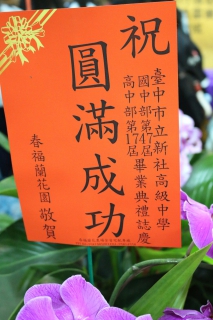 祝
臺中市立新社高級中學
國中部第47屆
高中部第17屆
畢業典禮誌慶
圓滿成功
春福蘭花園 敬賀